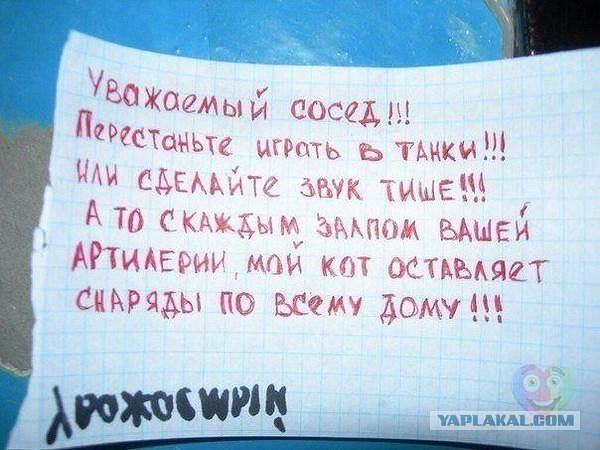 Уважаемый сосед!!!
Перестаньте играть в танки!!!
Или сделайте звук тише!!!
А то с каждым залпом вашей
артилерии, мой кот оставляет
снаряды по всему дому!!!
YAPLAKAL.COM